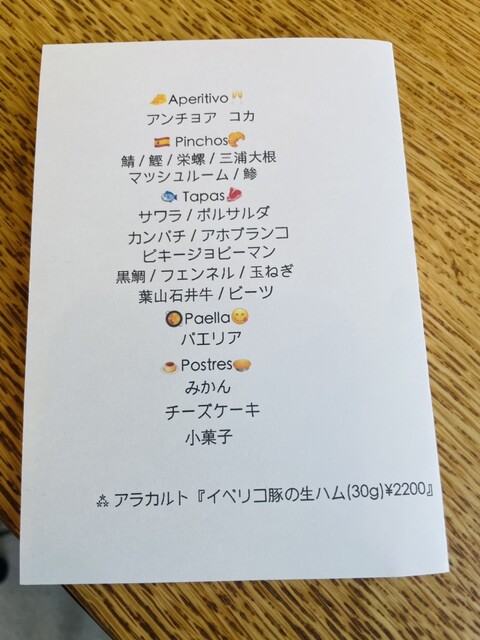 🧀Aperitivo🥂
アンチョア コカ
🇪🇸 Pinchos🥐
鯖 / 鰹 / 栄螺 / 三浦大根
マッシュルーム / 鯵
🐟 Tapas🥩
サワラ / ポルサルダ
カンパチ / アホブランコ
ピキージョピーマン
黒鯛 / フェンネル / 玉ねぎ
葉山石井牛 / ビーツ
🥘Paella😋
パエリア
🍮 Postres🥧
みかん
チーズケーキ
小菓子
⁂ アラカルト『イベリコ豚の生ハム(30g)¥2200』